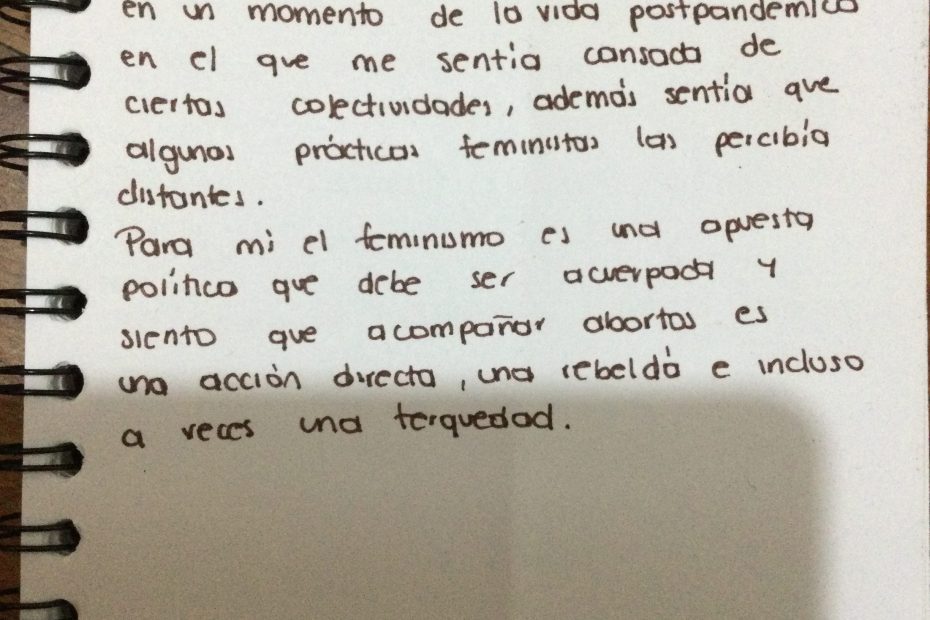 en un momento de la vida postpandémica
en el que me sentía cansada de
ciertas colectividades, además sentía que
algunas prácticas feministas las percibía
distantes.
Para mi el feminismo es una apuesta
política que debe ser acuerpada y
siento que acompañar abortos es
una acción directa, una rebeldía e incluso
a veces una terquedad.